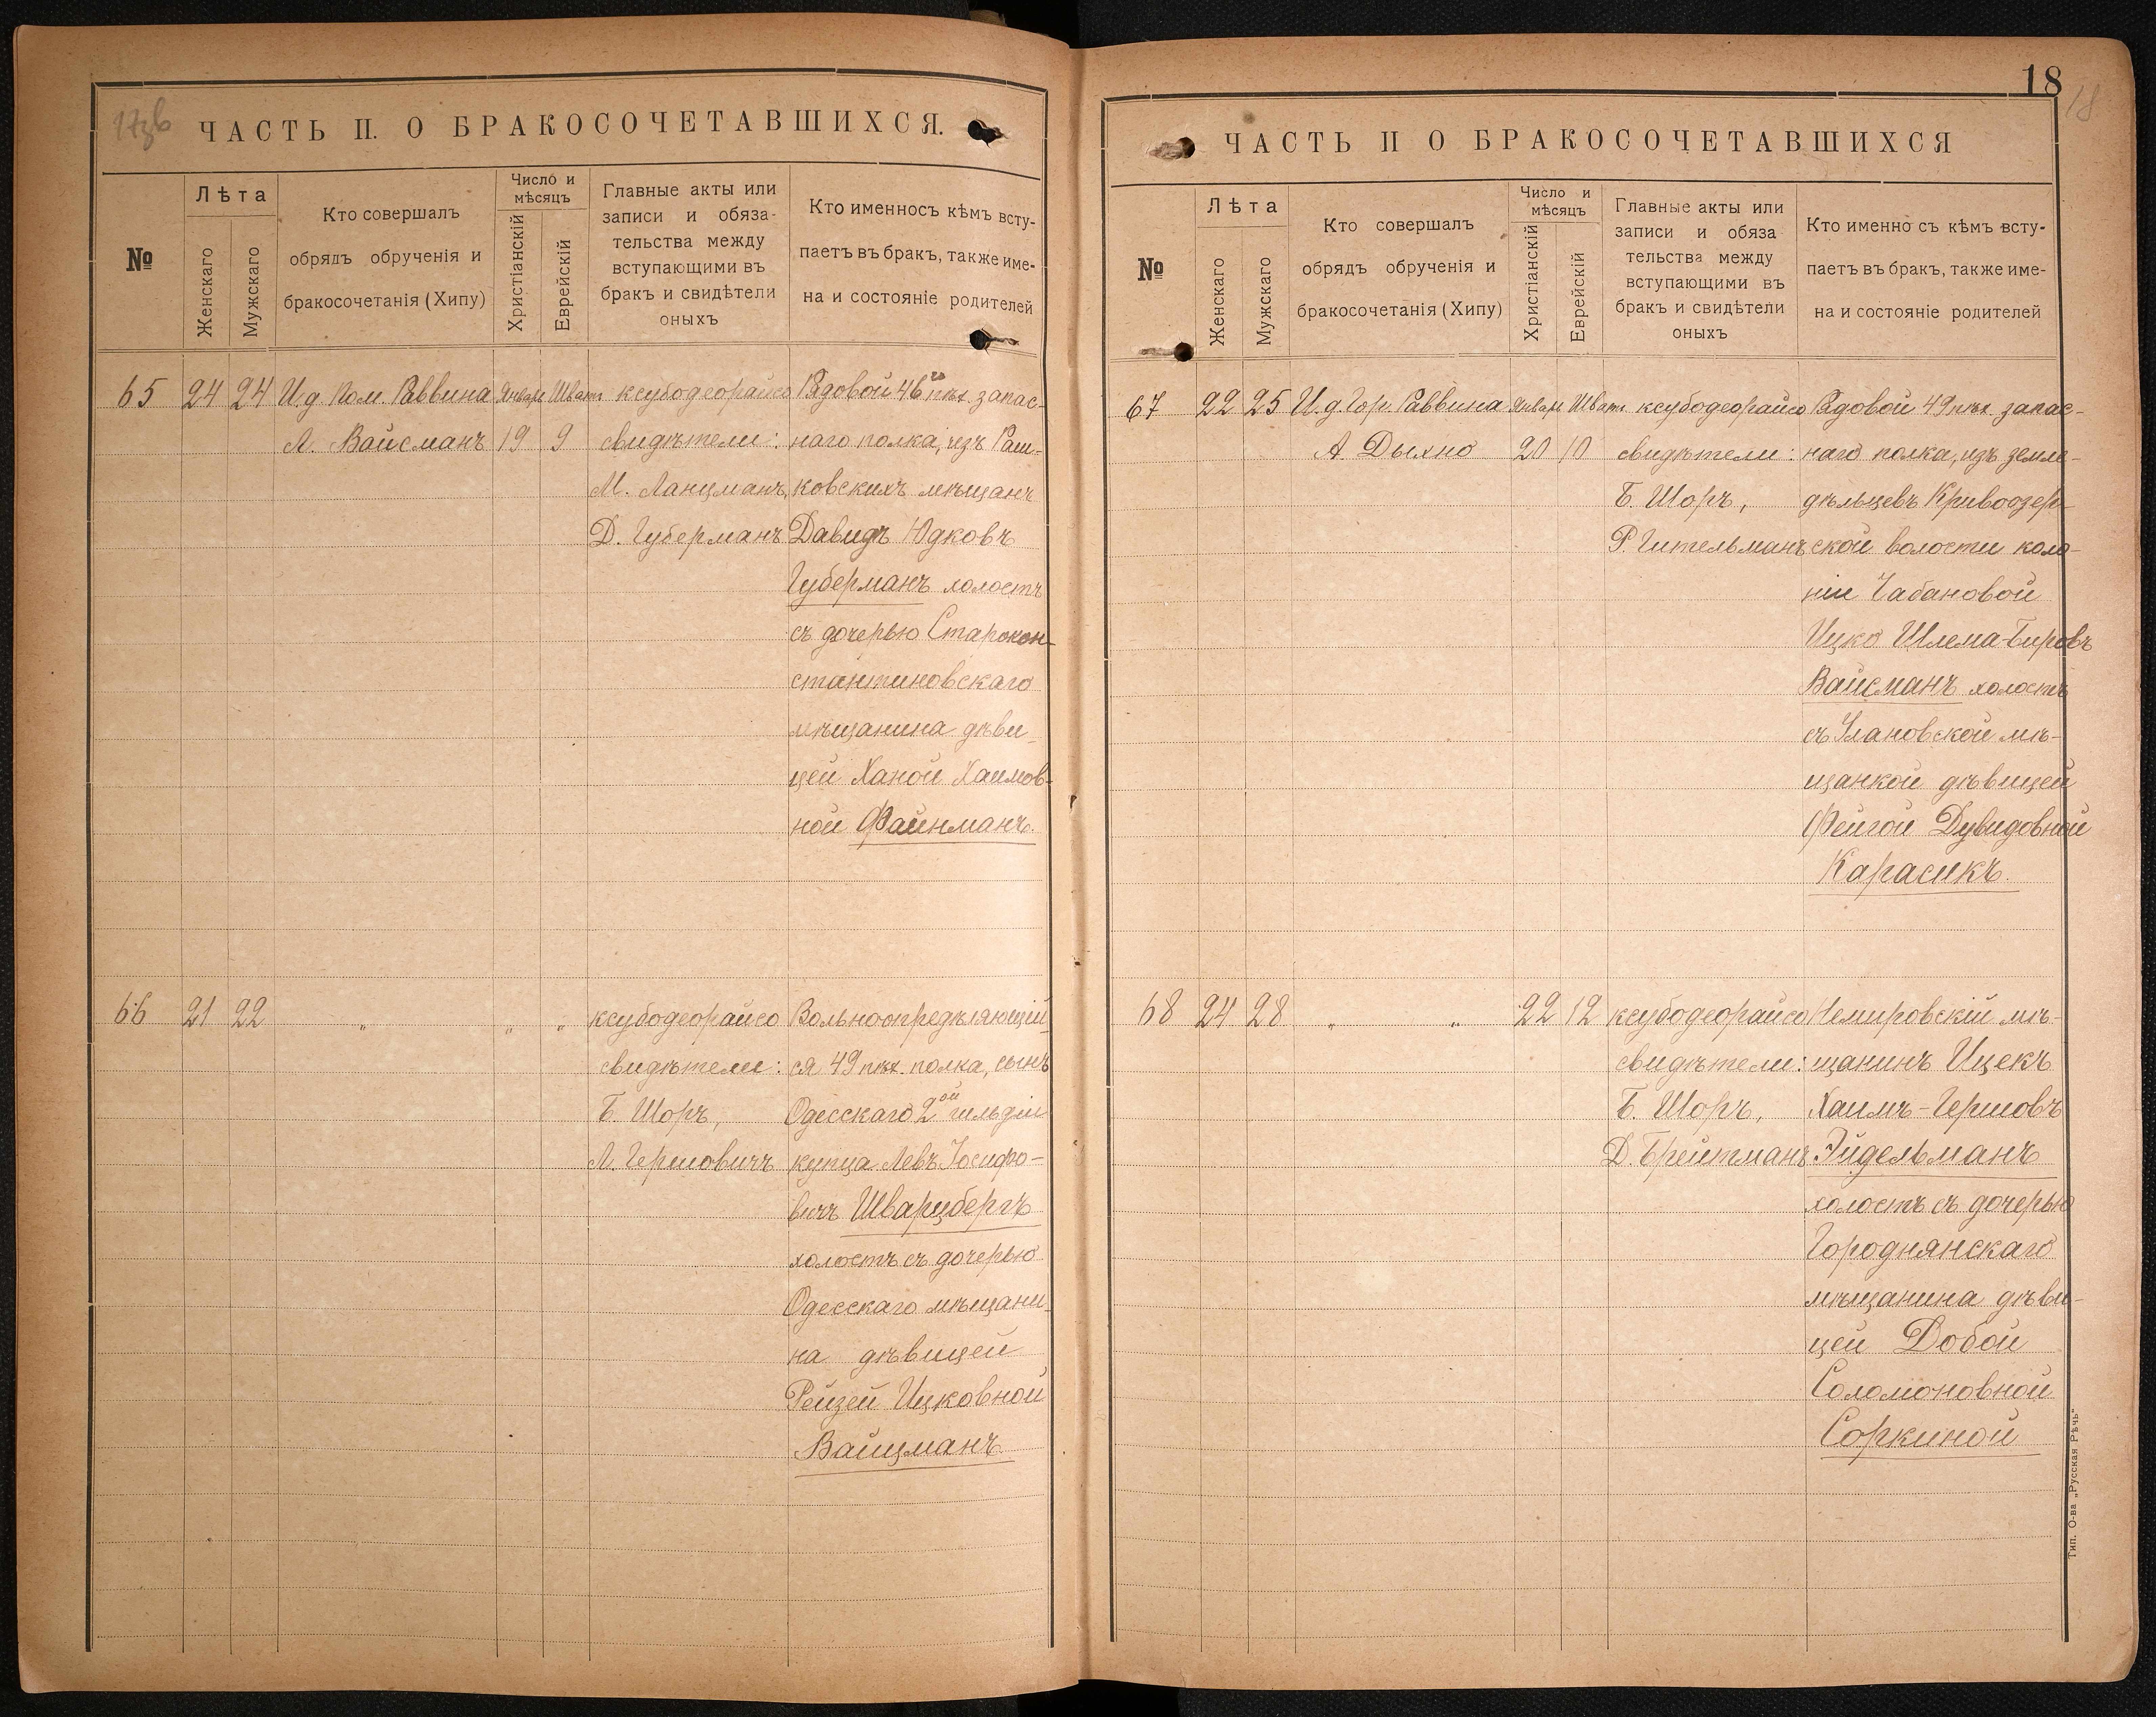 17зв
ЧАСТЬ II. О БРАКОСОЧЕТАВШИХСЯ.
№
Лѣта
Женскаго
Мужскаго
Кто совершалъ
обрядъ обрученія и
бракосочетанія (Хипу)
Число и
мѣсяцъ
Христіанскій
Еврейскій
Главные акты или
записи и обяза-
тельства между
вступающими въ
бракъ и свидѣтели
оныхъ
Кто именносъ кѣмъ всту-
паетъ въ бракъ, также име-
на и состояніе родителей
65 24 24 И.д. Пом. Раввина Январь Шват ксубодеорайсо Рядовой 46го пѣх. запас-
Л. Вайсманъ 19 9 свидѣтели: наго полка, изъ Раш-
М. Ланцманъ, ковскихъ мѣщанъ
Д. Губерманъ Давидъ Юдковъ
Губерманъ холостъ
съ дочерью Старокон-
стантиновскаго
мѣщанина дѣви-
цей Ханой Хаимов-
ной Файнманъ.
66 21 22 „ „ „ ксубодеорайсо Вольноопредѣляющій-
свидѣтели: ся 49 пѣх. полка, сынъ
Б. Шоръ, Одесскаго 2ой гильдіи
Л. Гершовичъ купца Левъ Іосифо-
вичъ Шварцбергъ
холостъ съ дочерью
Одесскаго мѣщани-
на дѣвицей
Рейзей Ицковной
Вайцманъ
18
18
ЧАСТЬ II О БРАКОСОЧЕТАВШИХСЯ
№
Лѣта
Женскаго
Мужскаго
Кто совершалъ
обрядъ обрученія и
бракосочетанія (Хипу)
Число и
мѣсяцъ
Христіанскій
Еврейскій
Главные акты или
записи и обяза
тельства между
вступающими въ
бракъ и свидѣтели
оныхъ
Кто именно съ кѣмъ всту-
паетъ въ бракъ, также име-
на и состояніе родителей
67 22 25 И.д. Гор. Раввина Январь Шват ксубодеорайсо Рядовой 49 пѣх. запас-
А Дыхно 20 10 свидѣтели: наго полка, изъ земле-
Б. Шоръ, дѣльцевъ Кривоозер-
Р. Гительманъ ской волости коло-
ніи Чабановой
Ицко Шлема-Бировъ
Вайсманъ холостъ
съ Улановской мѣ-
щанкой дѣвицей
Фейгой Дувидовной
Карасикъ.
68 24 28 „ „ 22 12 ксубодеорайсо Немировскій мѣ-
свидѣтели: щанинъ Ицекъ
Б. Шоръ, Хаимъ-Гершовъ
Д. Брейтманъ Эйдельманъ
холостъ съ дочерью
Городнянскаго
мѣщанина дѣви-
цей Добой
Соломоновной
Соркиной
Тип. О-ва „Русская Рѣчь"